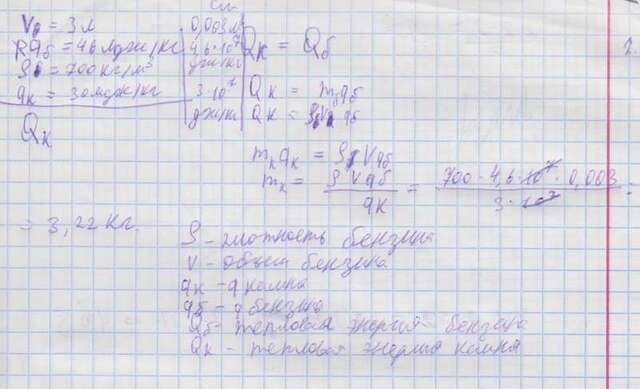 Си
V = 3 л | 0,003 м³
qб = 46 МДж/кг | 4,6·10⁷ Дж/кг
ρ = 700 кг/м³
qк = 30 МДж/кг | 3·10⁷ Дж/кг
Qк
Qк = Qб
Qк = mqб
Qк = ρVqб
mкqк = ρVqб
mк = ρVqб / qк = 700·4,6·10⁷·0,003 / 3·10⁷ =
= 3,22 кг.
ρ - плотность бензина
V - объем бензина
qк - q камня
qб - q бензина
Qб - тепловая энергия бензина
Qк - тепловая энергия камня
2.